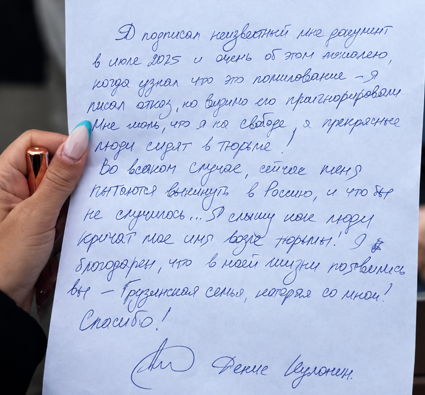 Я подписал неизвестный мне документ
в июле 2025 и очень об этом пожалею,
когда узнал что это помилование – я
писал отказ, но видимо его проигнорировали
Мне жаль, что я на свободе, а прекрасные
люди сидят в тюрьме!
Во всяком случае, сейчас меня
пытаются выкинуть в Россию, и что бы
не случилось... Я слышу как люди
кричат мое имя возле тюрьмы! Я
благодарен, что в моей жизни появились
вы – Грузинская семья, которая со мной!
Спасибо!
Денис Кулонин.